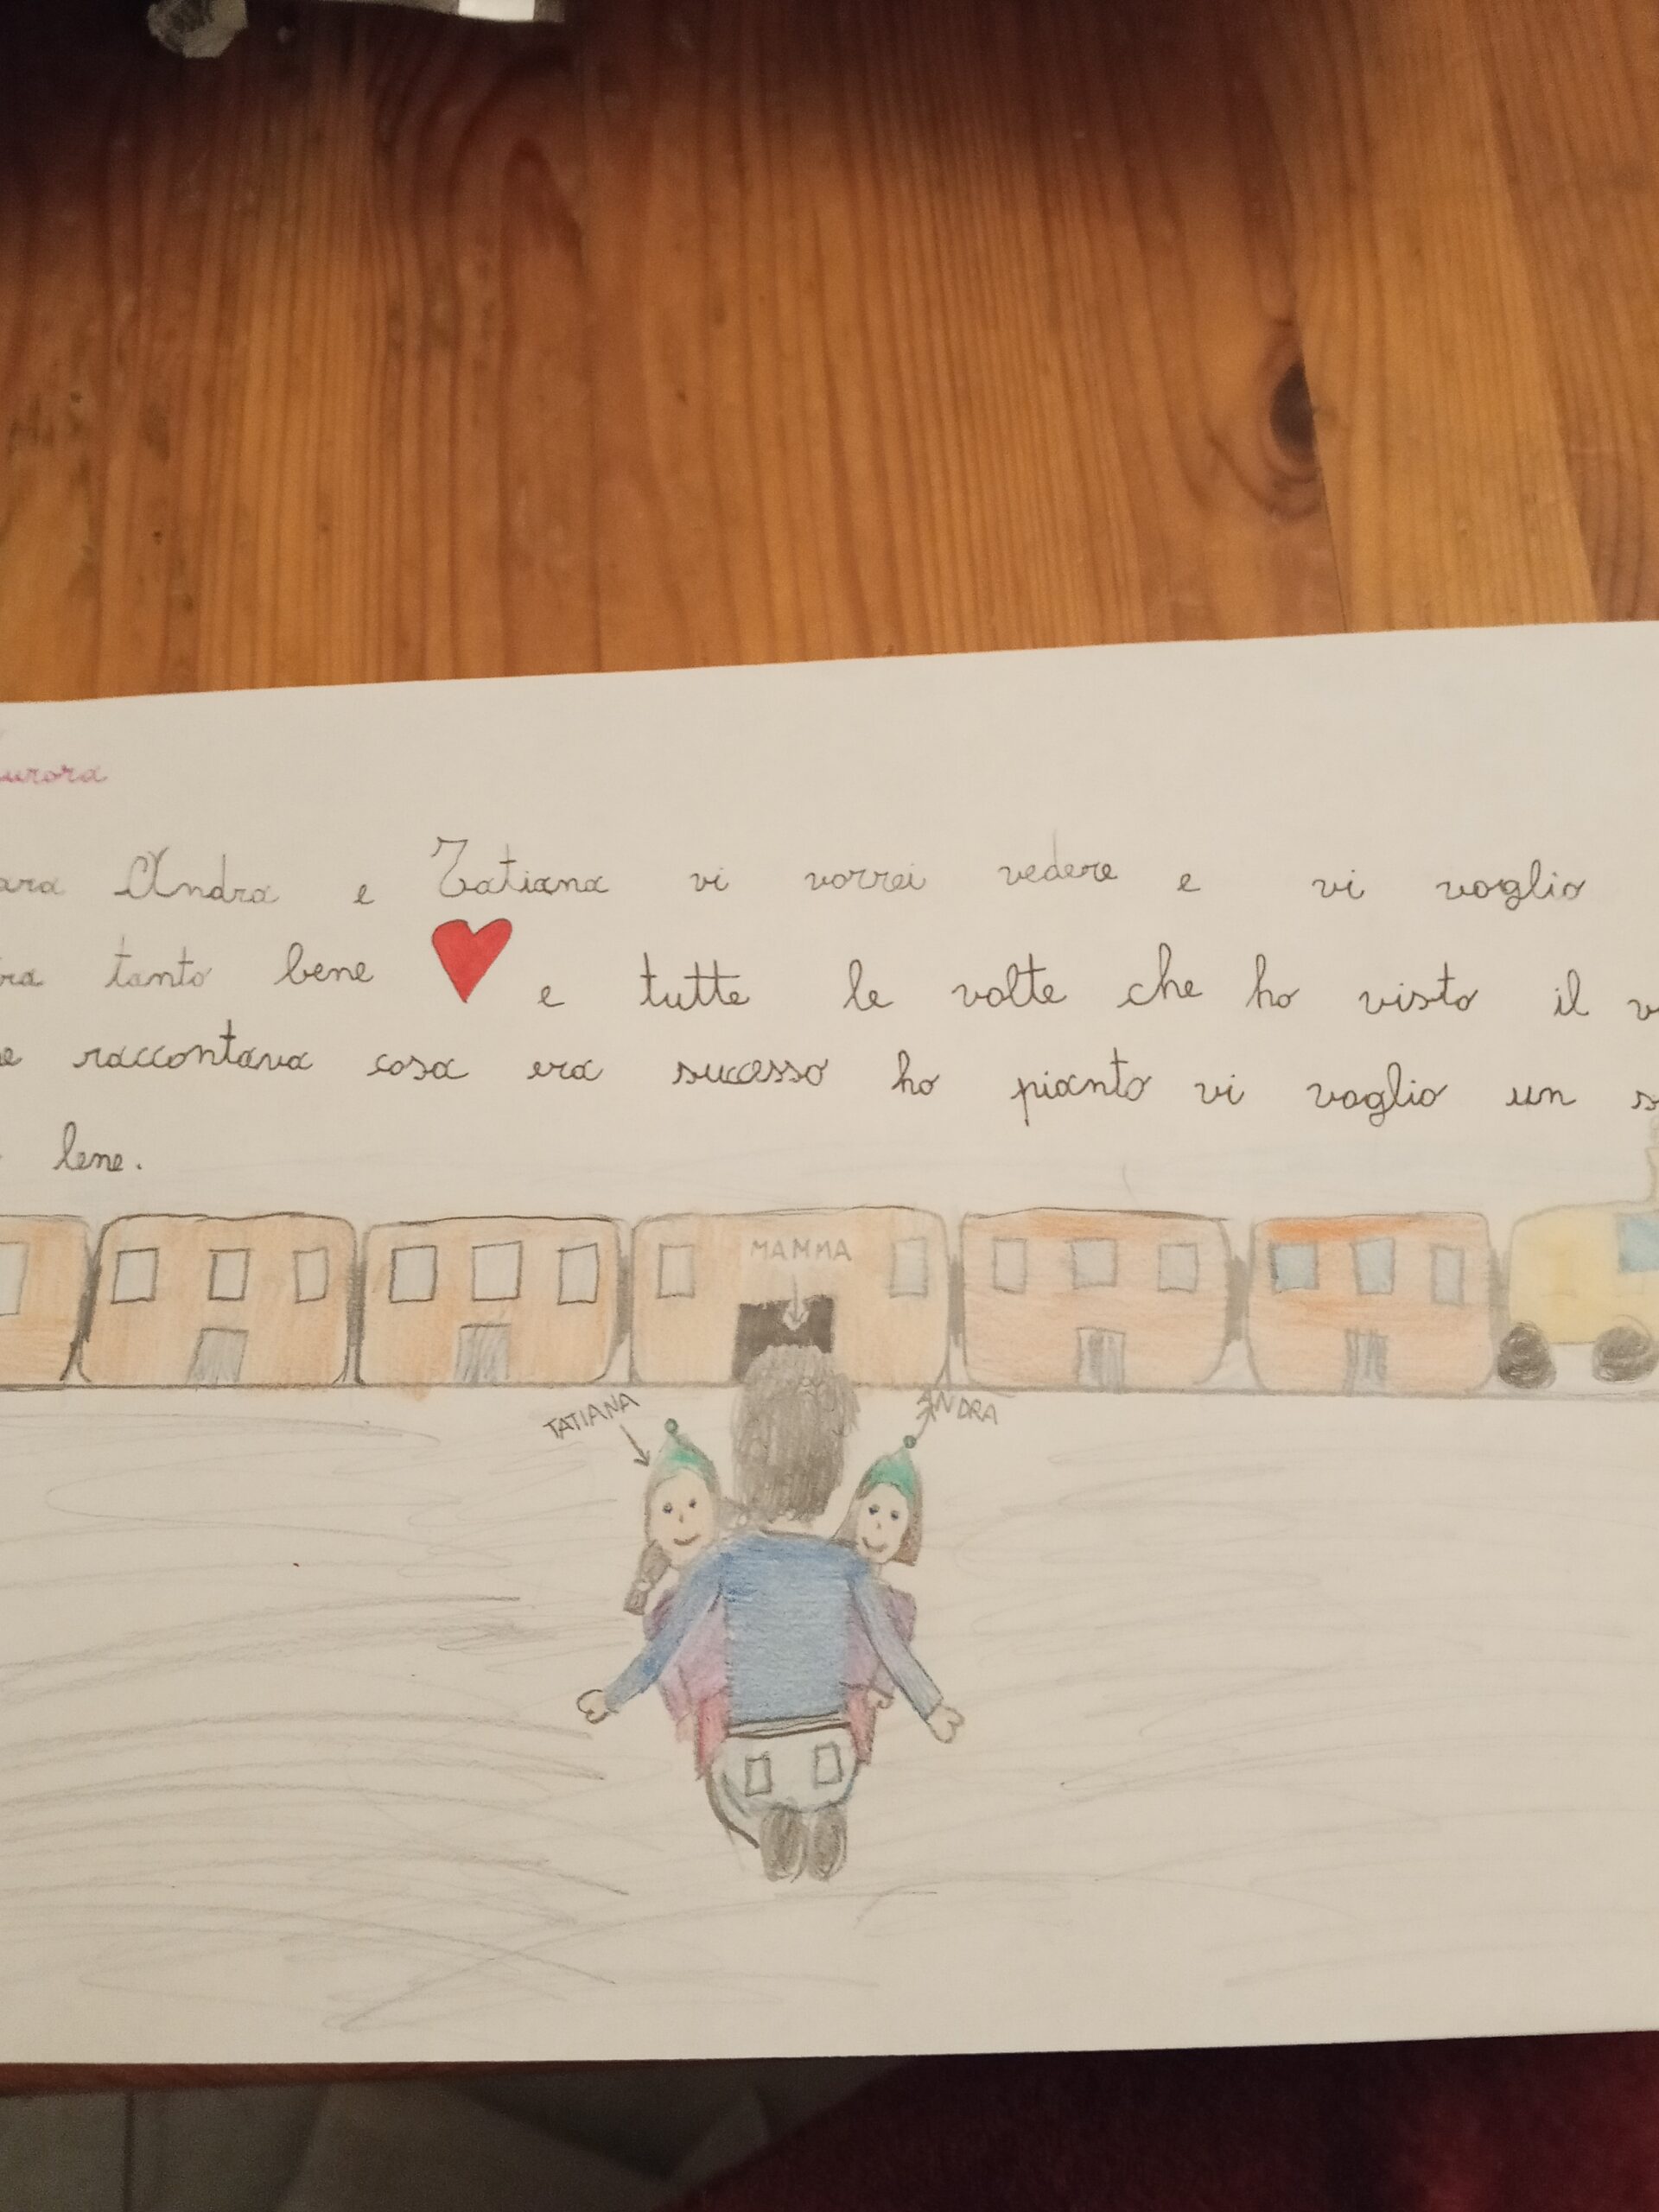 urora
ara Andra e Tatiana vi vorrei vedere e vi voglio
ra tanto bene e tutte le volte che ho visto il v
e raccontava cosa era sucesso ho pianto vi voglio un s
lene.
MAMMA
TATIANA
ANDRA